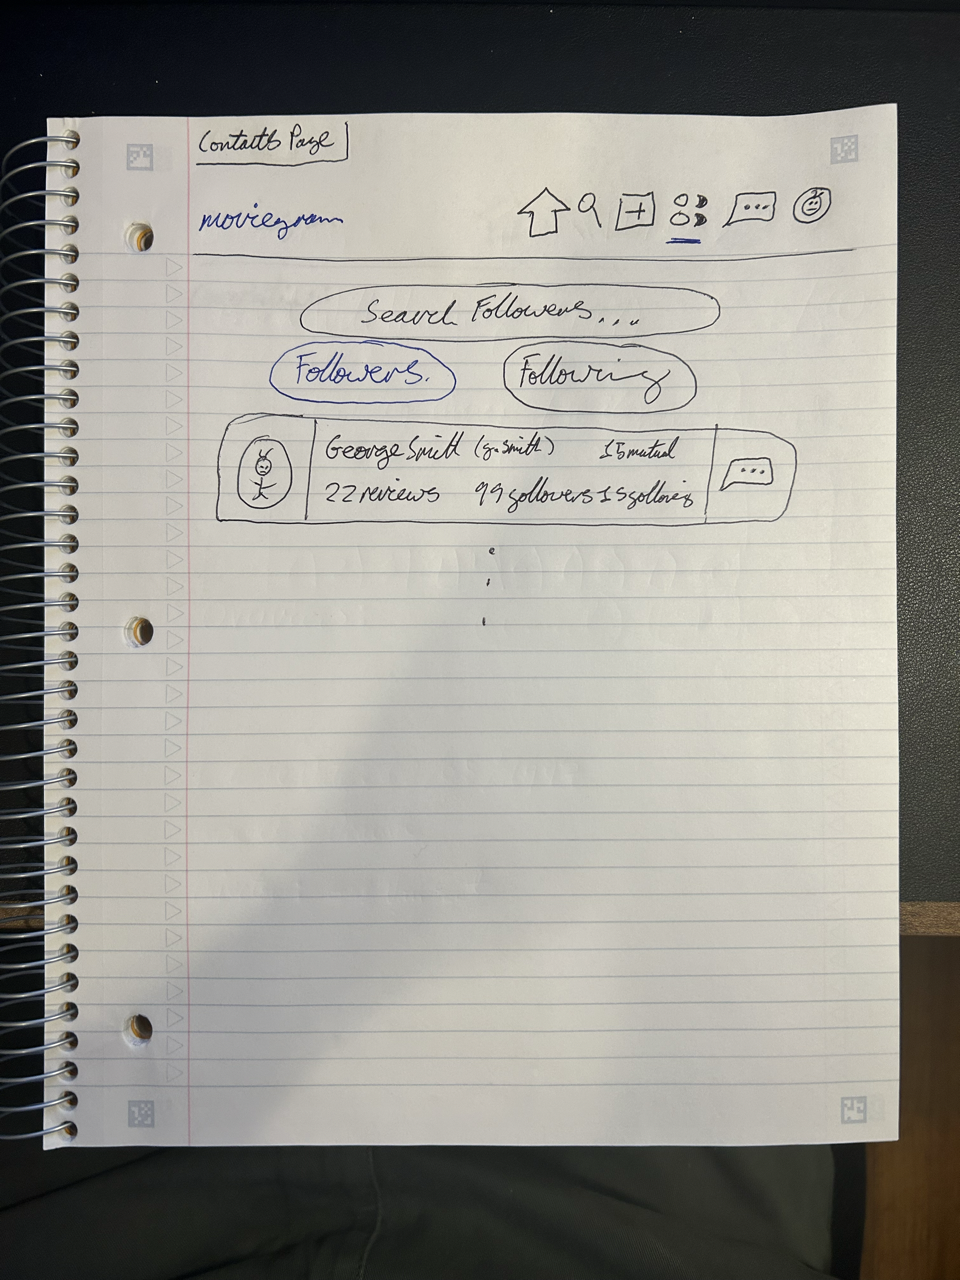 Contacts Page
moviegram
Search Followers...
Followers.
Following
George Smith (g.smith) 15 mutual
22 reviews 99 followers 15 following